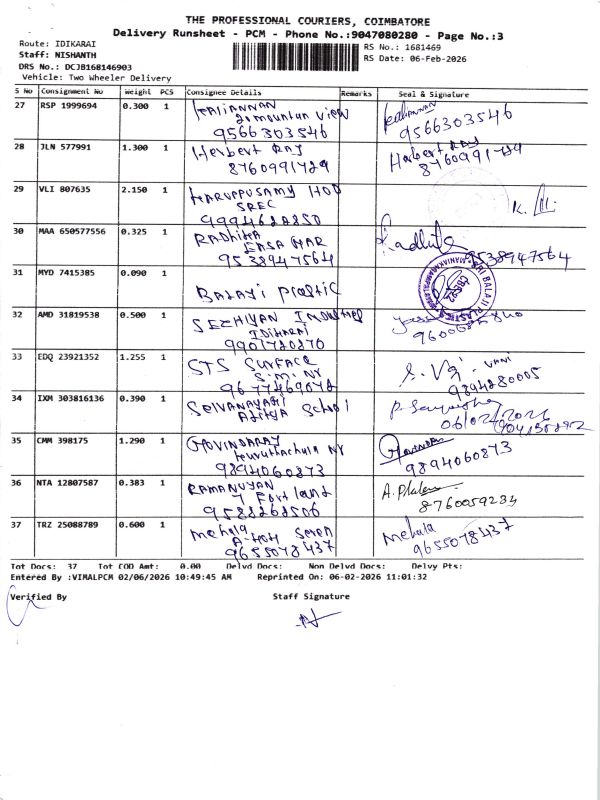 THE PROFESSIONAL COURIERS, COIMBATORE
Delivery Runsheet - PCM - Phone No.:9047080280 - Page No.:3
Route: IDIKARAI
Staff: NISHANTH
DRS No.: DCJB168146903
Vehicle: Two Wheeler Delivery
RS No.: 1681469
RS Date: 06-Feb-2026
S No Consignment No Weight PCS Consignee Details Remarks Seal & Signature
27 RSP 1999694 0.300 1 Kaliannan
mountain view
9566303546
9566303546
28 JLN 577991 1.300 1 Herbert Ray
8760991729
Herbert Ray
8760991729
29 VLI 807635 2.150 1 Karuppusamy HOD
SREC
9994628850
30 MAA 650577556 0.325 1 RADHIKA
EASA NAR
9538947564
Radhika
9538947564
31 MYD 7415385 0.090 1
Balaji plastic
32 AMD 31819538 0.500 1 SEZHIYAN Industries
IDIKARAI
9901720870
33 EDQ 23921352 1.255 1 STS SURFACE
S.M. NY
9677469078
VANI
9894280005
34 IXM 303816136 0.390 1 Selvanayagi
Aditya School
06/02/2026
35 CMM 398175 1.290 1 GOVINDARAJ
NY
9894060873
9894060873
36 NTA 12807587 0.383 1 RAMANUYAN
Fort land
9588268506
8760059234
37 TRZ 25088789 0.600 1 Mehala
9655078437
Mehala
9655078437
Tot Docs: 37 Tot COD Amt: 0.00 Delvd Docs: Non Delvd Docs: Delvy Pts:
Entered By :VIMALPCM 02/06/2026 10:49:45 AM Reprinted On: 06-02-2026 11:01:32
Verified By Staff Signature